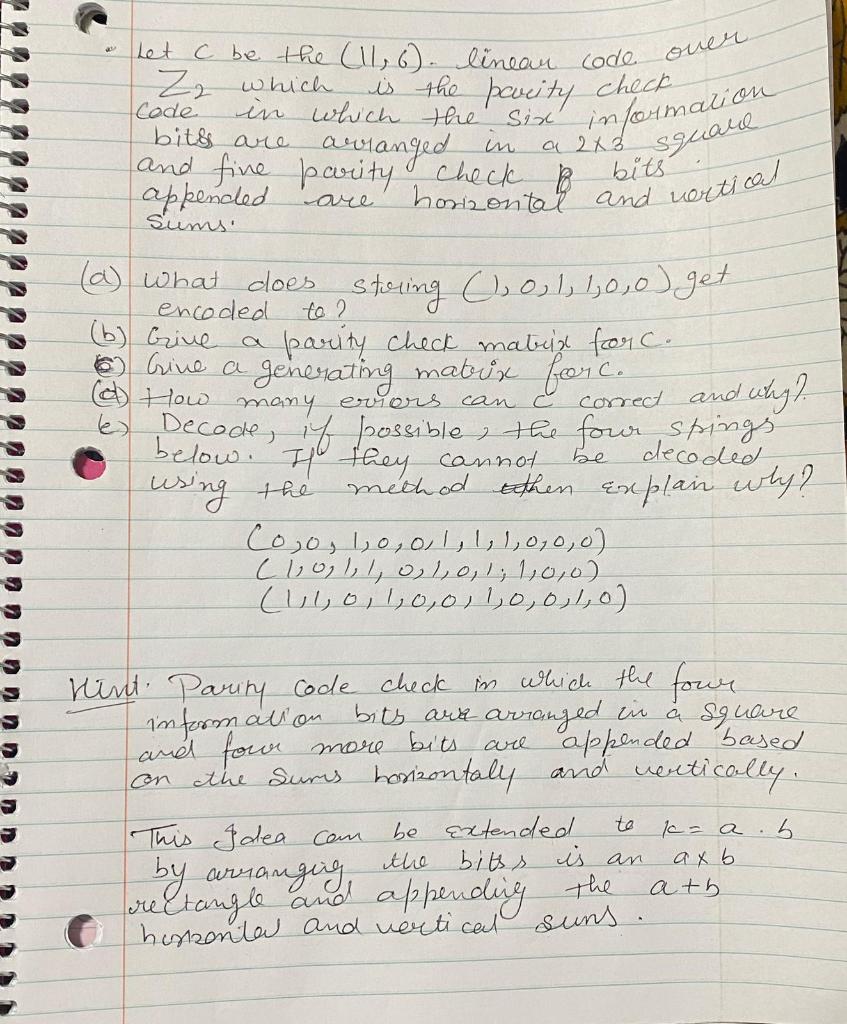 Let C be the (11,6)- linear code over
Z2 which is the parity check
code in which the six information
bits are arranged in a 2x3 square
and five parity check bits
appended are horizontal and vertical
sums.
(a) what does string (1,0,1,1,0,0) get
encoded to?
(b) Give a parity check matrix for C.
(c) Give a generating matrix for C.
(d) How many errors can C correct and why?
(e) Decode, if possible, the four strings
below. If they cannot be decoded
using the method then explain why?
(0,0,1,0,0,1,1,1,0,0,0)
(1,0,1,1,0,1,0,1,1,0,0)
(1,1,0,1,0,0,1,0,0,1,0)
Hint. Parity code check in which the four
information bits are arranged in a square
and four more bits are appended based
on the sums horizontaly and vertically.
This Idea can be extended to k = a . b
by arranging the bits is an axb
rectangle and appending the a+b
horizontal and vertical sums.